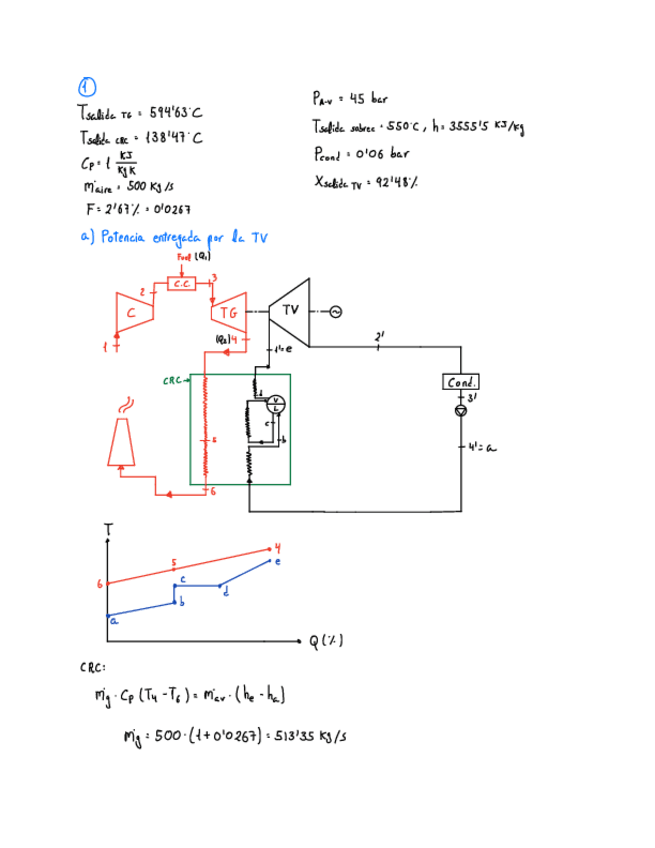 1
Tsalida TG = 594'63°C
Tsalida CRC = 138'47°C
Cp = 1 KJ/KgK
ṁaire = 500 Kg/s
F = 2'67% = 0'0267
PA-V = 45 bar
Tsalida sobrec = 550°C, h = 3555'5 KJ/Kg
Pcond = 0'06 bar
Xsalida TV = 92'48%
a) Potencia entregada por la TV
Fuel (Q1)
2 C.C. 3
C TG TV
1 (Q2) 4 1'=e 2'
CRC
Cond.
3'
d V
L
c
5 b 4'=a
6
T
4
5 e
6 c
d
b
a
Q (%)
CRC:
ṁg · Cp (T4 - T6) = ṁav · (he - ha)
ṁg = 500 · (1 + 0'0267) = 513'35 Kg/s